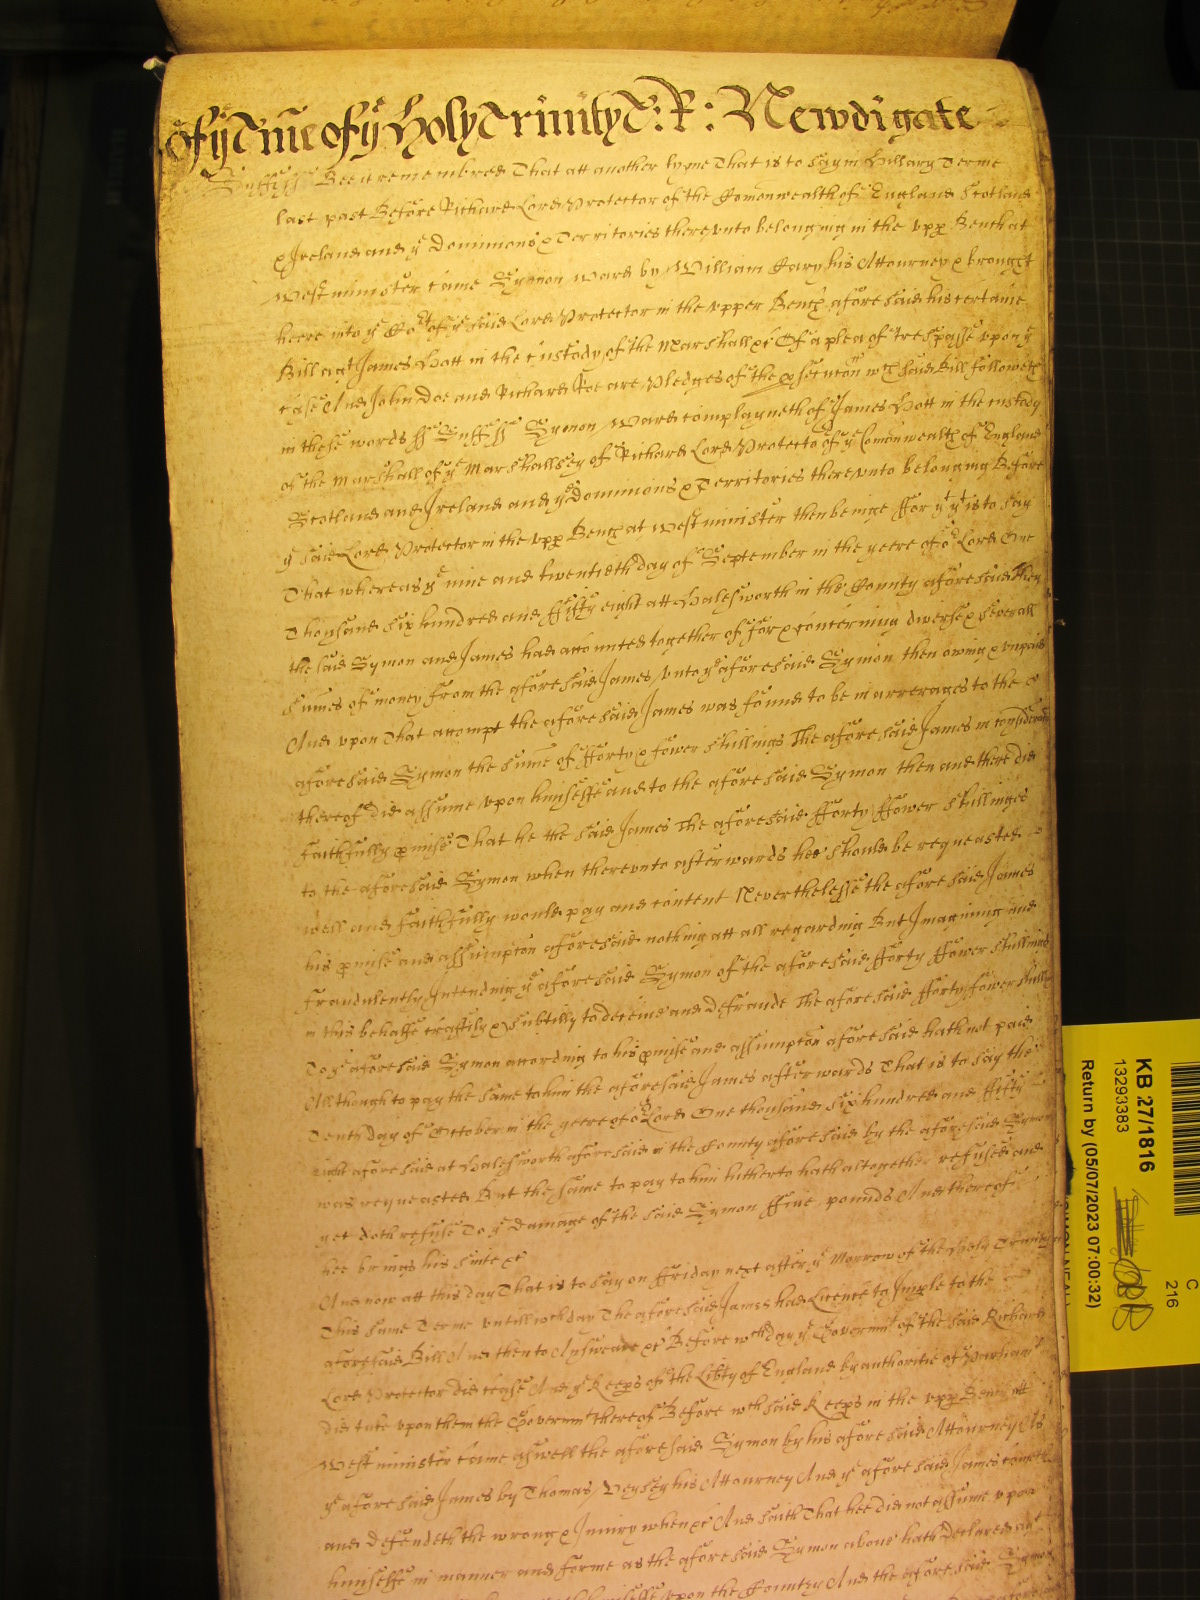 Of ye T'me of ye Holy Trinity T: R: Newdigate
Suff ss Bee it remembred That att another tyme That is to say in Hillary Terme
last past Before Richard Lord Protector of the Comonwealth of England Scotland
& Ireland and ye Dominions & Territories therevnto belonging in the vpp Bench at
Westminster came Symon Ward by William Cary his Attourney & brought
heere into ye Cort of ye said Lord Protector in the vpper Bench aforesaid his certaine
Bill agt James Hott in the custody of the Marshall &c Of a plea of trespasse vpon ye
case And John Doe and Richard Roe are Pledges of the p'secucon wch said Bill followeth
in these words ss Suff ss Symon Ward complayneth of James Hott in the custody
of the Marshall of ye Marshallsey of Richard Lord Protector of ye Comonwealth of England
Scotland and Ireland and ye Dominions & Territories therevnto belonging Before
ye said Lord Protector in the vpp Bench at Westminister then beinge ffor yt yt is to say
That whereas ye nine and twentieth day of September in the yeere of or Lord One
Thousand six hundred and ffifty eight att Halesworth in the County aforesaid they
the said Symon and James had accounted together of for & concerning diverse & severall
sumes of money from the aforesaid James vnto ye aforesaid Symon then owing & vnpaid
And vpon that accompt the aforesaid James was found to be in arrerages to the
aforesaid Symon the sume of fforty & fower shillings The aforesaid James in consideracon
thereof did assume vpon himselfe and to the aforesaid Symon then and there did
faithfully p'mise That he the said James The aforesaid fforty ffower shillinges
to the aforesaid Symon when therevnto afterwards hee should be requeasted
well and faithfully would pay and content Neverthelesse the aforesaid James
his p'mise and assumpton aforesaid nothing att all regarding But Imagining and
fraudulently Intending ye aforesaid Symon of the aforesaid fforty ffower shillings
in this behalfe craftily & subtilly to deceive and defraude The aforesaid fforty fower shillings
To ye aforesaid Symon according to his p'mise and assumpton aforesaid hath not paid
Allthough to pay the same to him the aforesaid James afterwards That is to say the
Tenth day of October in the yeere of or Lord One thousand six hundred and ffifty
eight aforesaid at Halesworth aforesaid in the County aforesaid by the aforesaid Symon
was requeasted But the same to pay to him hitherto hath altogether refused and
yet doth refuse To ye damage of the said Symon ffiue pounds And thereof
hee brings his suite &c
And now att this day That is to say on ffriday next after ye Morrow of the Holy Trinity
This same Terme vntill wch day The aforesaid James had Licence to Imple to the
aforesaid Bill And then to Answeare &c Before wch day ye Governmt of the said Richard
Lord Protector did cease And ye Keep's of the Lib'ty of England by authoritie of Parliamt
did take vpon them the Governmt thereof Before wch said Keep's in the vpp Bench att
Westminister came aswell the aforesaid Symon by his aforesaid Attourney As
ye aforesaid James by Thomas Veysey his Attourney And ye aforesaid James cometh
and defendeth the wrong & Iniury when &c And saith That hee did not assume vpon
himselfe in manner and forme as the aforesaid Symon above hath Declared agt
vpon the Country And the aforesaid Symon
KB 27/1816
13293383
Return by (05/07/2023 07:00:32)
C
216